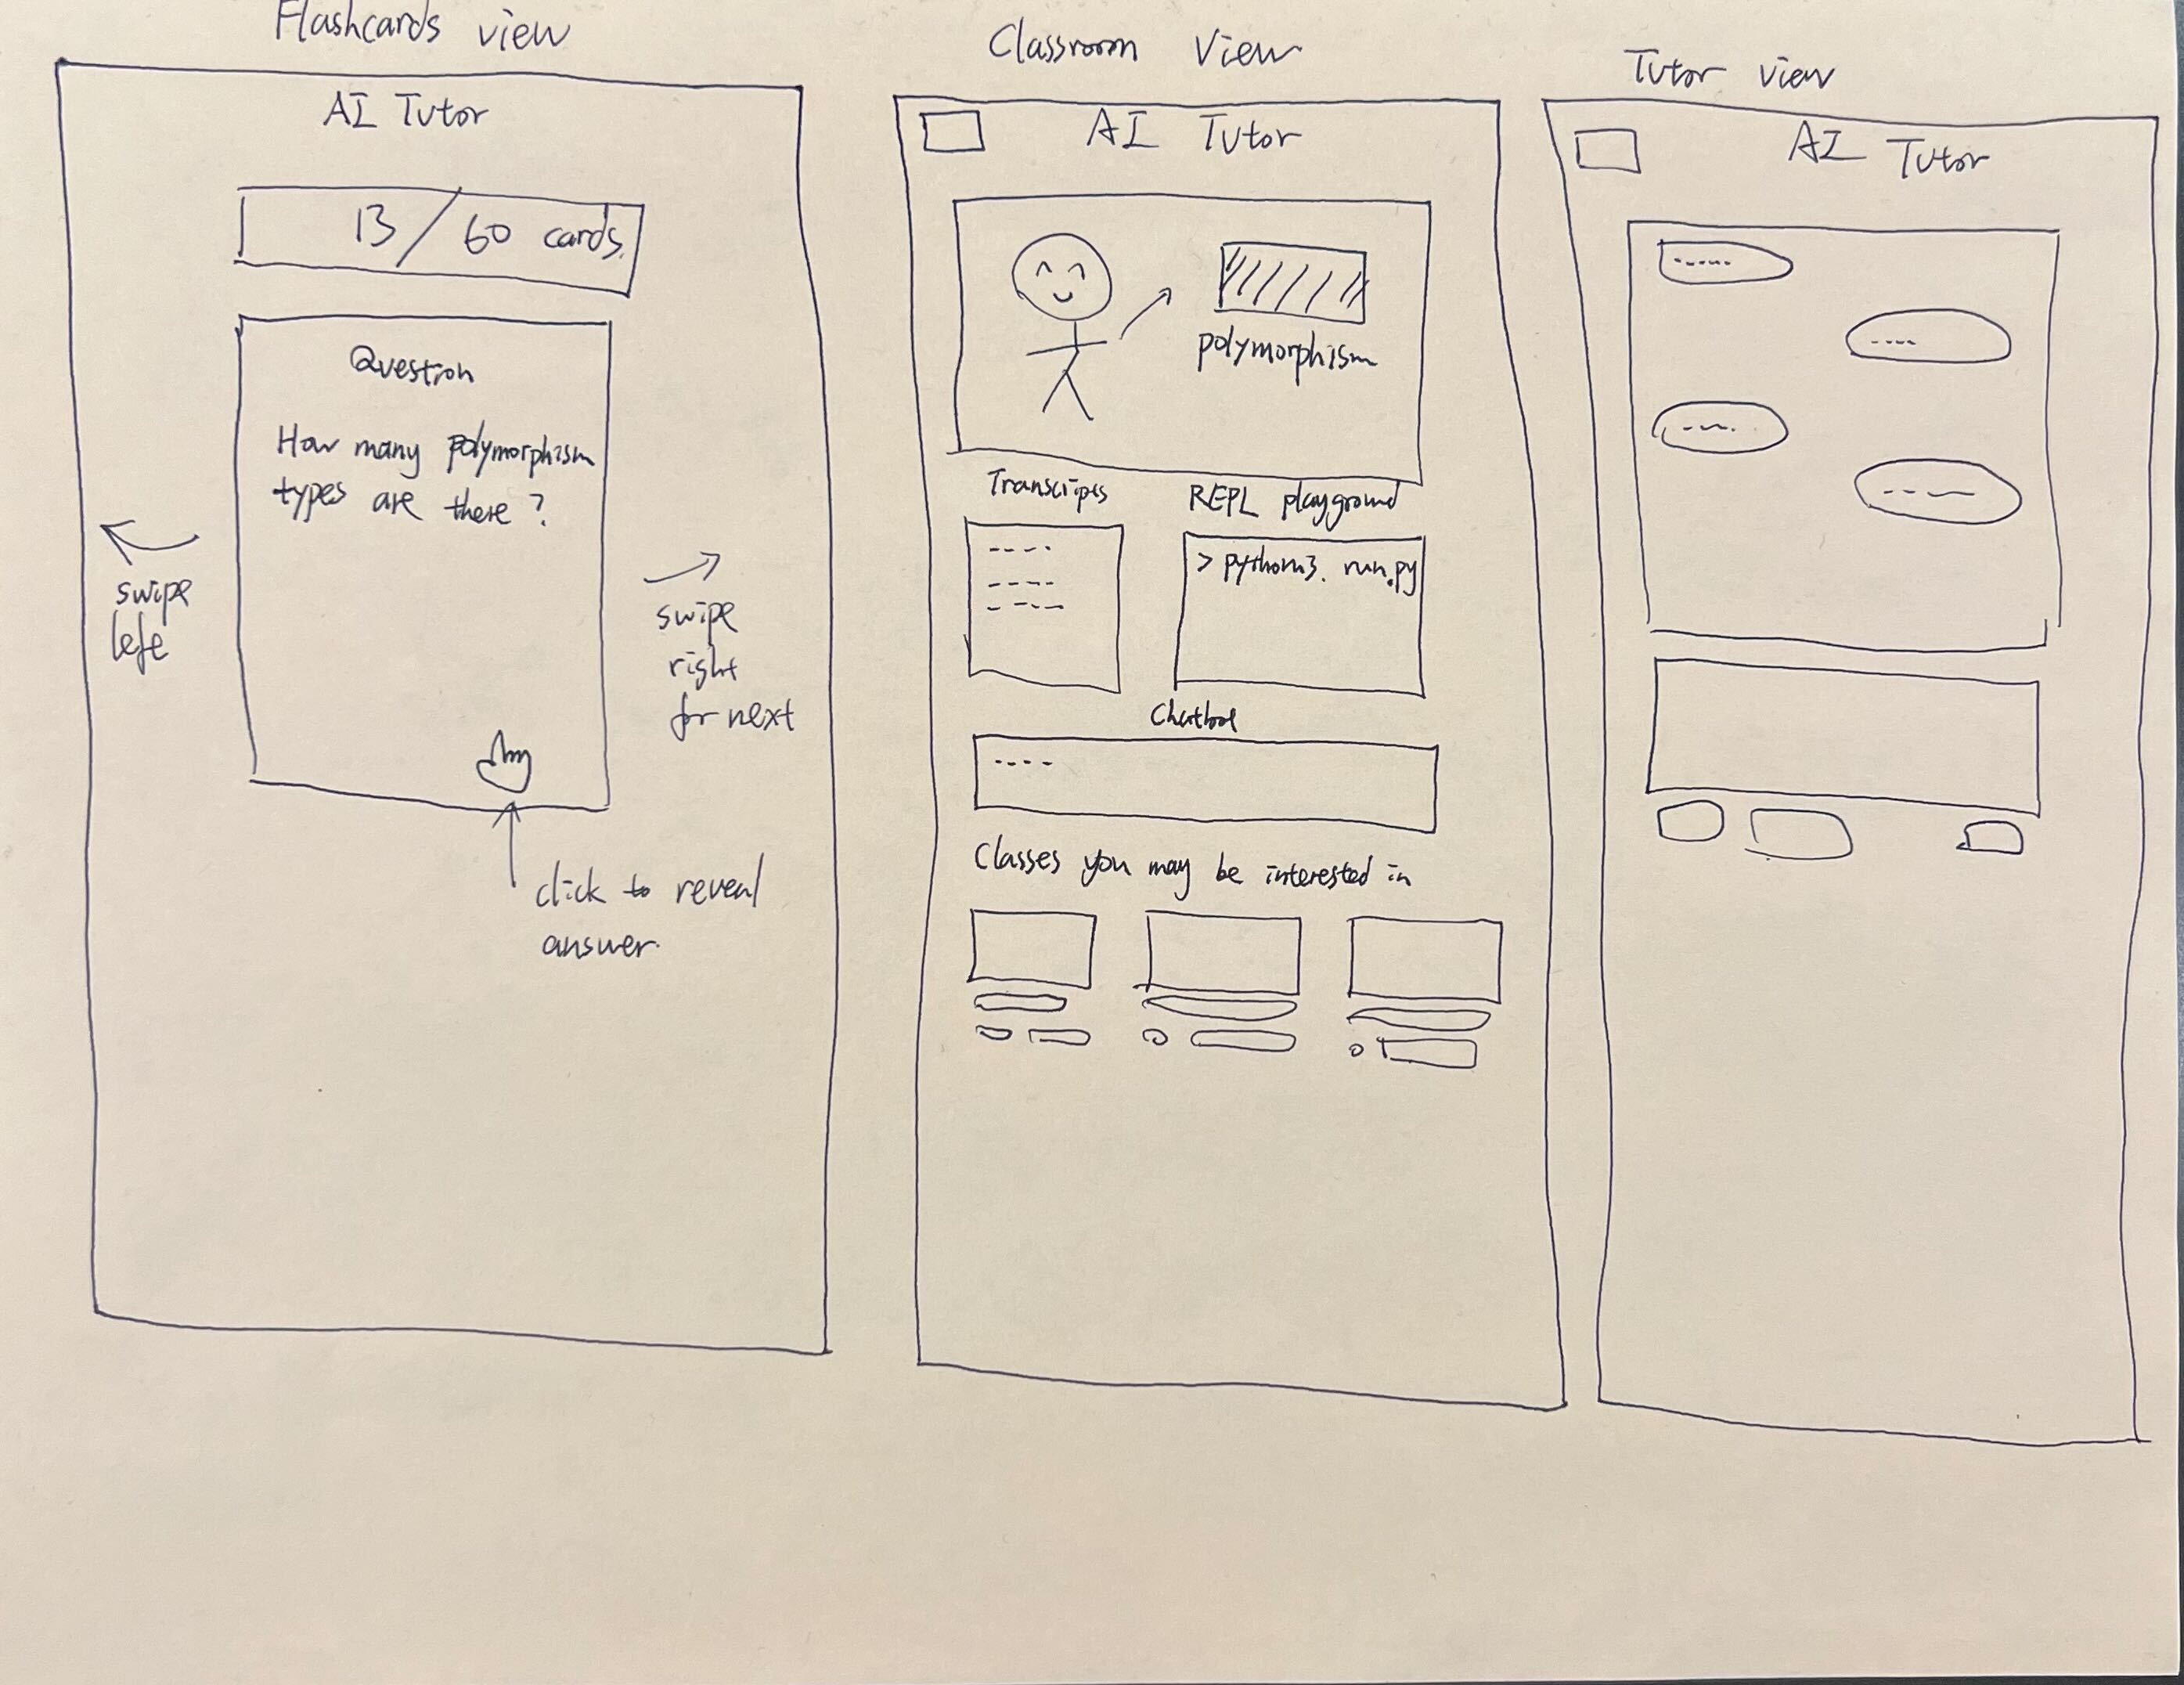 Flashcards view
AI Tutor
13 / 60 cards.
Question
How many polymorphism
types are there ?
swipe
left
swipe
right
for next
click to reveal
answer.
Classroom View
AI Tutor
polymorphism
Transcripts
REPL playground
> python3. run.py
Chatbot
Classes you may be interested in
Tutor view
AI Tutor